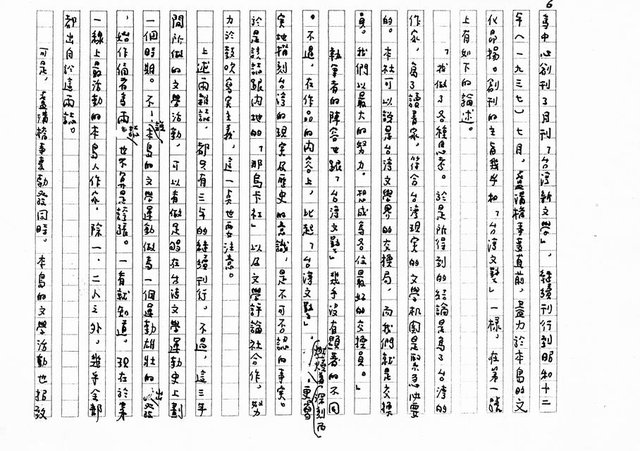 6
事中心創刊了月刊「台灣新文學」，繼續刊行到昭和十二
年（一九三七）七月，蘆溝橋事變直前，盡力於本島的文
化品揚。創刊的主旨幾乎和「台灣文藝」一樣，在第一號
上有如下的論述。
「我做了各種思考。於是所得到的結論是為了台灣的
作家，為了讀書家，符合台灣現實的文學机關是
的。本社可以說是台灣文學界的交換局，而我們就是交換
員。我們以最大的努力，想成為各位最好的交換員。」
執筆者的陣容也跟「台灣文藝」幾乎沒有顯著的不同
。不過，在作品的內容上，比起「台灣文藝」，
更寫
實地描刻台灣的現實及歷史的意識，是不可不認的事實。
於是該誌跟內地的「那烏卡社」以及文學評論社合作，努
力於鼓吹寫實主義，這一点也要注意。
上述兩雜誌，都只有三年的繼續刊行。不過，這三年
間所做的文學活動，可以看做是夠在台灣文學運動史上劃
一個時期。不，說本島的文學運動做為一個運動雄壯的
始作俑者喜兩誌也不算是誇張。一看就知道，現在於第
一線上最活動的本島人作家，除一、二人之外，幾乎全部
都出自於這兩誌。
可是，蘆溝橋事變勃發同時，本島的文學活動也招致